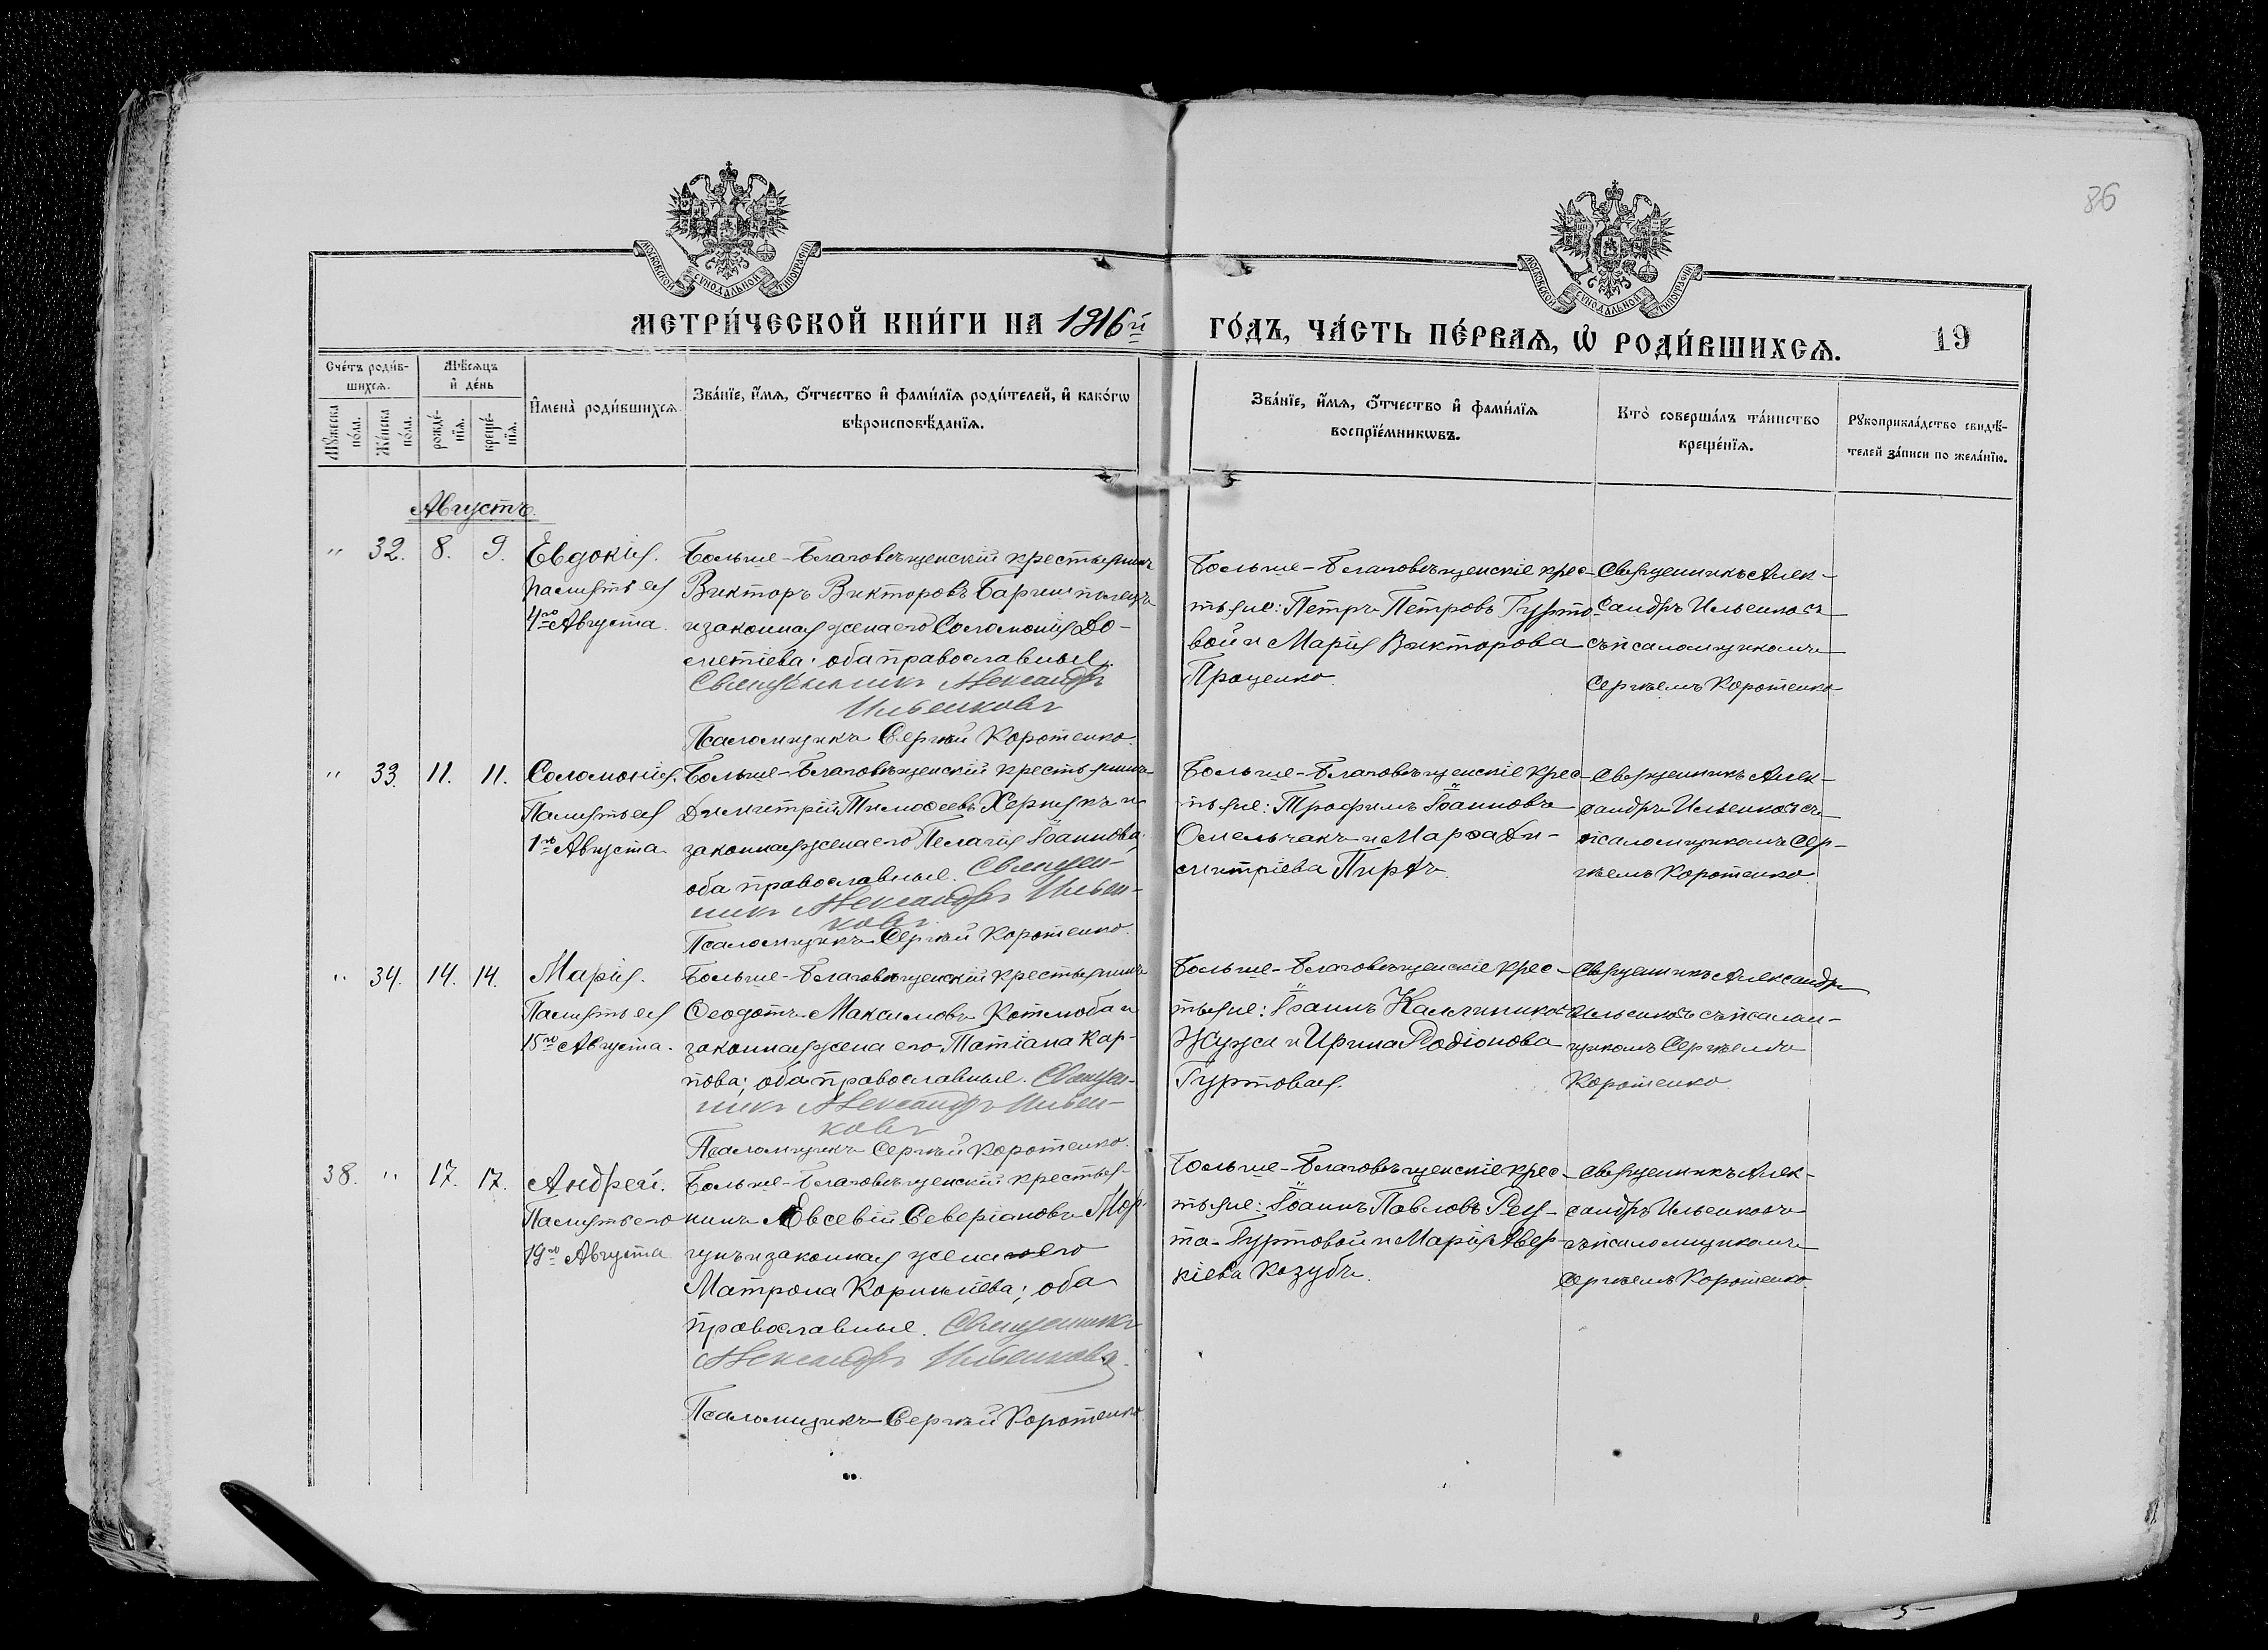 86
МОСКОВСКОЙ СѴНОДАЛЬНОЙ ТИПОГРАФІИ
МОСКОВСКОЙ СѴНОДАЛЬНОЙ ТИПОГРАФІИ
МЕТРИ́ЧЕСКОЙ КНИ́ГИ НА 1916й ГО́ДЪ, ЧА́СТЬ ПЕ́РВАЯ, Ѡ РОДИ́ВШИХСЯ. 19
Сче́тъ роди́в-
шихся.
Мꙋжеска по́ла.
Же́нска по́ла.
Мѣ́сяцъ и де́нь
рожде́-нїя.
креще́-нїя.
Имена̀ роди́вшихся.
Зва́нїе, и́мя, о́тчество и фами́лїя роди́телей, и како́гѡ
вѣроисповѣ́данїя.
Зва́нїе, и́мя, о́тчество и фами́лїя
воспрїе́мникѡвъ.
Кто̀ соверша́лъ та́инство
креще́нїя.
Рꙋкоприкла́дство свидѣ́-
телей за́писи по жела́нїю.
Августъ.
" 32. 8. 9. Евдокія.
Память ея
4го Августа.
Больше-Благовѣщенскій крестьянинъ
Викторъ Викторовъ
и законная жена его Соломонія До-
метіева; оба православные.
Священникъ Александръ
Ильенковъ
Псаломщикъ Сергѣй Коротенко.
Больше-Благовѣщенскіе крес-
тьяне: Петръ Петровъ Гурто-
вой и Марія Викторова
Проценко.
Священникъ Алек-
сандръ Ильенковъ
съ псаломщикомъ
Сергѣемъ Коротенко
" 33. 11. 11. Соломонія.
Память ея
1го Августа.
Больше-Благовѣщенскій крестьянинъ
Димитрій Тимоѳеевъ Хернякъ и
законная жена его Пелагія Іоаннова
оба православные. Священ-
никъ Александръ Ильен-
ковъ
Псаломщикъ Сергѣй Коротенко.
Больше-Благовѣщенскіе крес-
тьяне: Трофимъ Іоанновъ
Омельчакъ и Марѳа Ди-
митріева
Священникъ Алек-
сандръ Ильенковъ съ
псаломщикомъ Сер-
гѣемъ Коротенко
" 34. 14. 14. Марія.
Память ея
15го Августа.
Больше-Благовѣщенскій крестьянинъ
Ѳеодотъ Максимовъ Котлюба и
законная жена его Татіана Кар-
пова; оба православные. Священ-
никъ Александръ Ильен-
ковъ
Псаломщикъ Сергѣй Коротенко.
Больше-Благовѣщенскіе крес-
тьяне: Іоаннъ Каллиниковъ
Жужа и Ирина Родіонова
Гуртовая.
Священникъ Александръ
Ильенковъ съ псалом-
щикомъ Сергѣемъ
Коротенко
38. " 17. 17. Андрей.
Память его
19го Августа
Больше-Благовѣщенскій крестья-
нинъ Евсевій Северіановъ Мор-
гунъ и законная жена его
Матрона Корниліева; оба
православные. Священникъ
Александръ Ильенковъ.
Псаломщикъ Сергѣй Коротенко
Больше-Благовѣщенскіе крес-
тьяне: Іоаннъ Павловъ Рец-
та-Гуртовой и Марія Авер-
кіева Козубъ.
Священникъ Алек-
сандръ Ильенковъ
съ псаломщикомъ
Сергѣемъ Коротенко